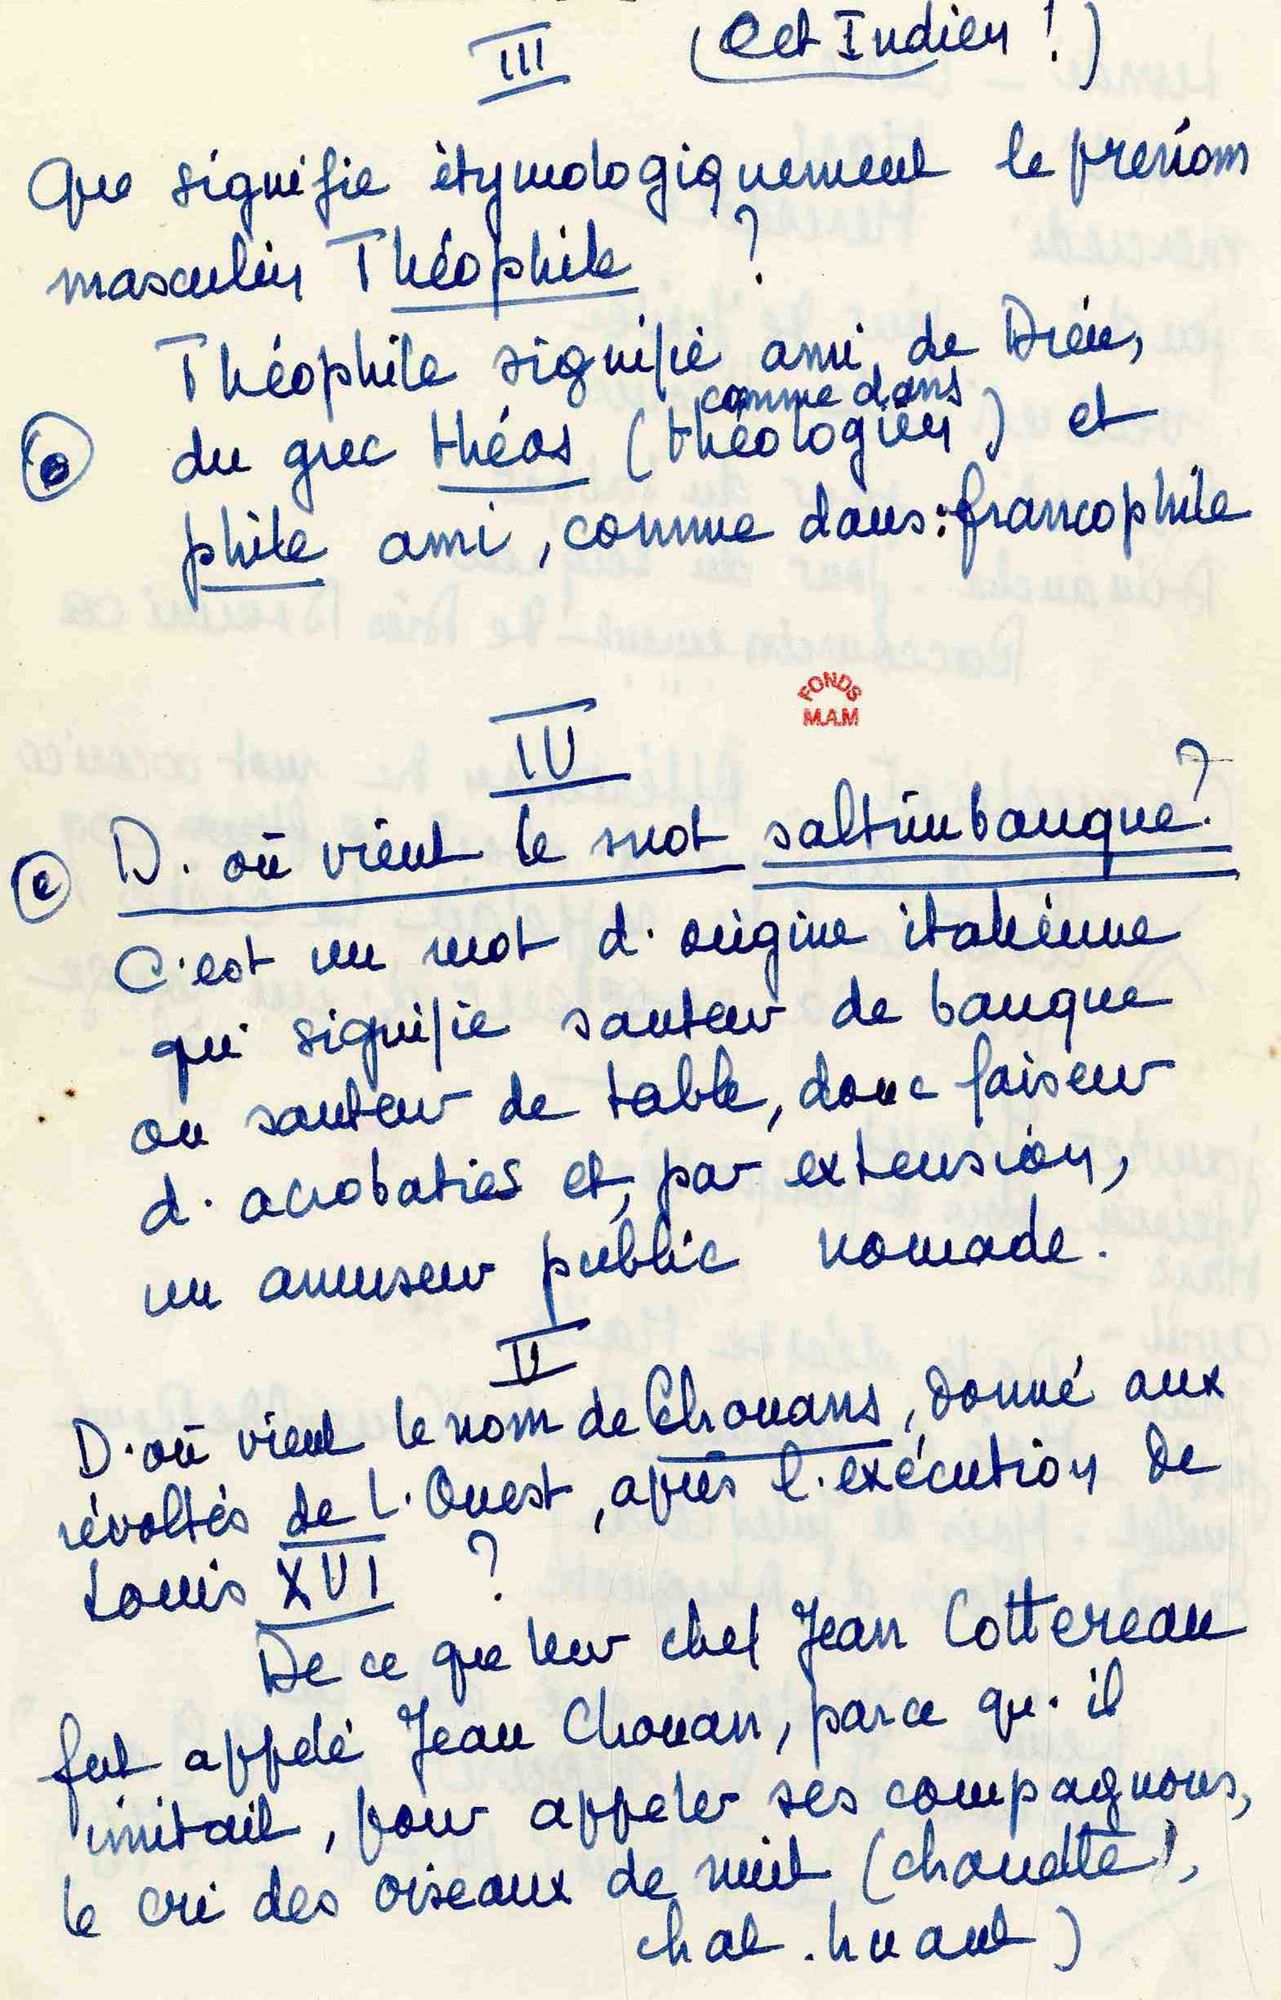 III (Cet Indien !)
Que signifie étymologiquement le prénom
masculin Théophile ?
Théophile signifie ami de Dieu,
comme dans
du grec théos (théologien) et
phile ami, comme dans : francophile
FONDS
M.A.M
IV
D'où vient le mot saltimbanque ?
C'est un mot d'origine italienne
qui signifie sauteur de banque
ou sauteur de table, donc faiseur
d'acrobaties et, par extension,
un amuseur public nomade.
V
D'où vient le nom de Chouans, donné aux
révoltés de l'Ouest, après l'exécution de
Louis XVI ?
De ce que leur chef Jean Cottereau
fut appelé Jean Chouan, parce qu'il
imitait, pour appeler ses compagnons,
le cri des oiseaux de nuit (chouette),
chat-huant)